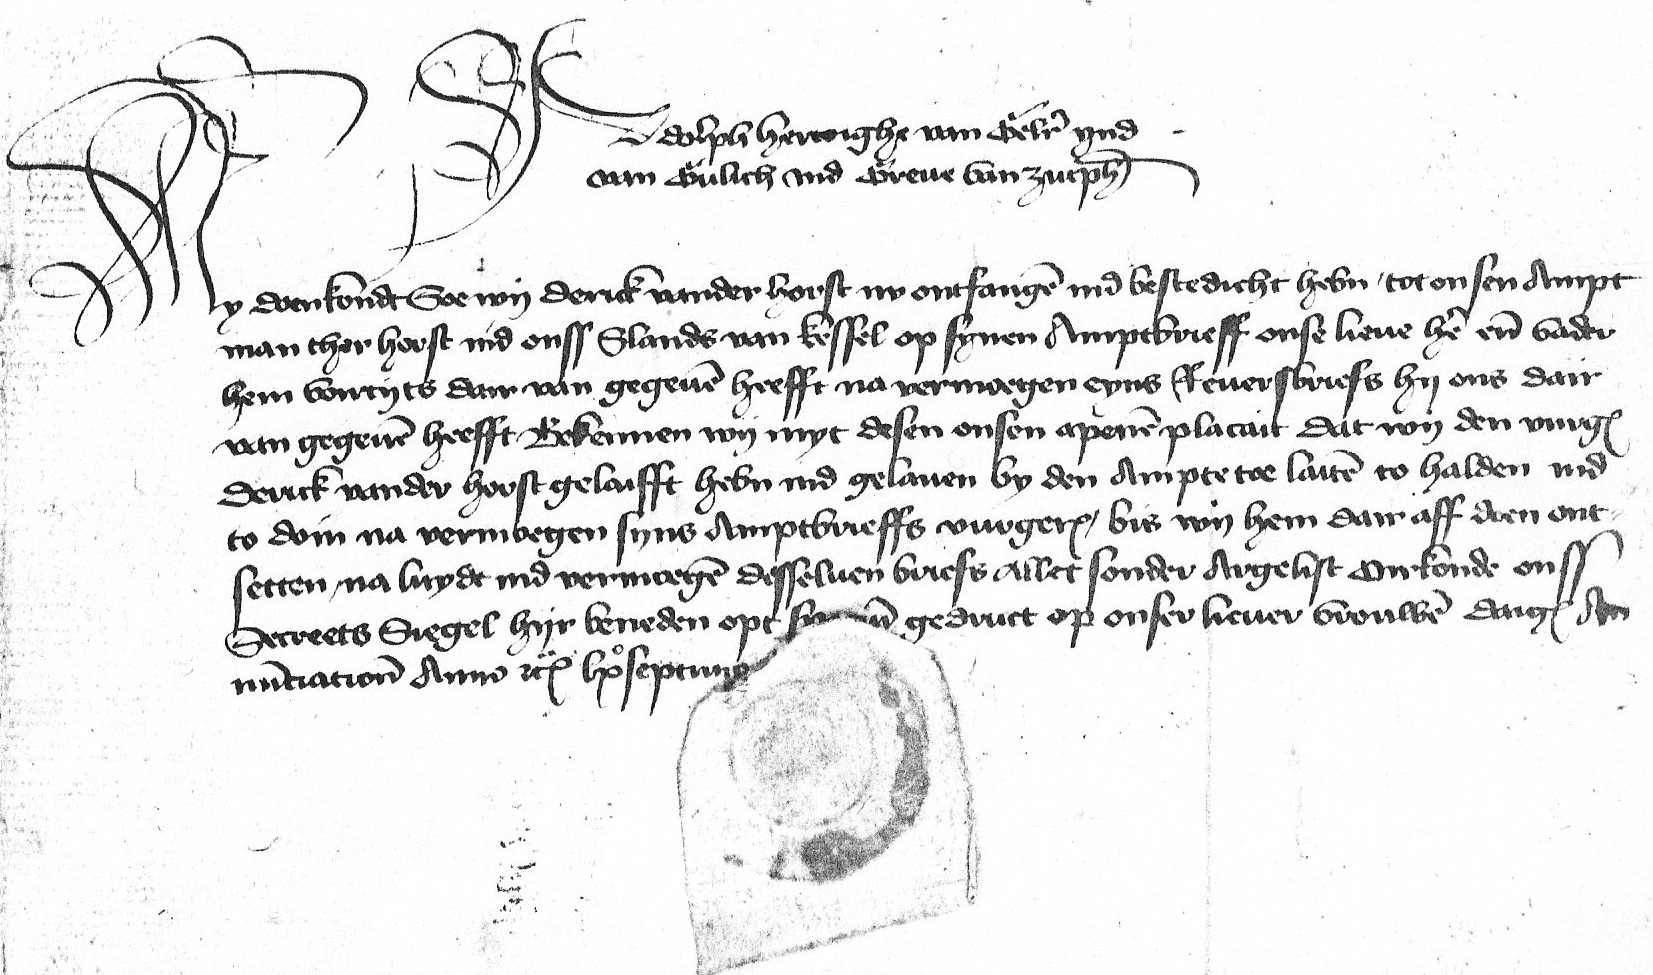 Adolph hertoighe van Gelr̄ ynd
van Guilich ind Greue van Zutphē
Wy doenkondt Soe wij derick vander horst nv ontfangē ind bestedicht hebn / tot onsen Ampt
man thor horst ind onss Slands van kessel op synen Amptbrieff onse lieue hē en̄ vader
hem vortijts dair van gegeuē heefft na vermoegen eyns Reuersbriefs hij ons dair
van gegeuē heefft Bekennen wij myt desen onsen apenē placait dat wij den vurgͬ
derick vander horst gelaifft hebn ind gelauen by den Ampte toe laitē to halden ind
to doin na vermoegen syns Amptbrieffs vurgerͬ / bis wij hem dair aff doen ont
setten / na luydt ind vermoegē desseluen briefs Allet sonder Argelist Oirkonde onss
Secreets Siegel hijr beneden opt gedruct op onser lieuer vrouwē daigͬ An
nūtiation̄ Anno etcͬ lxo septimo